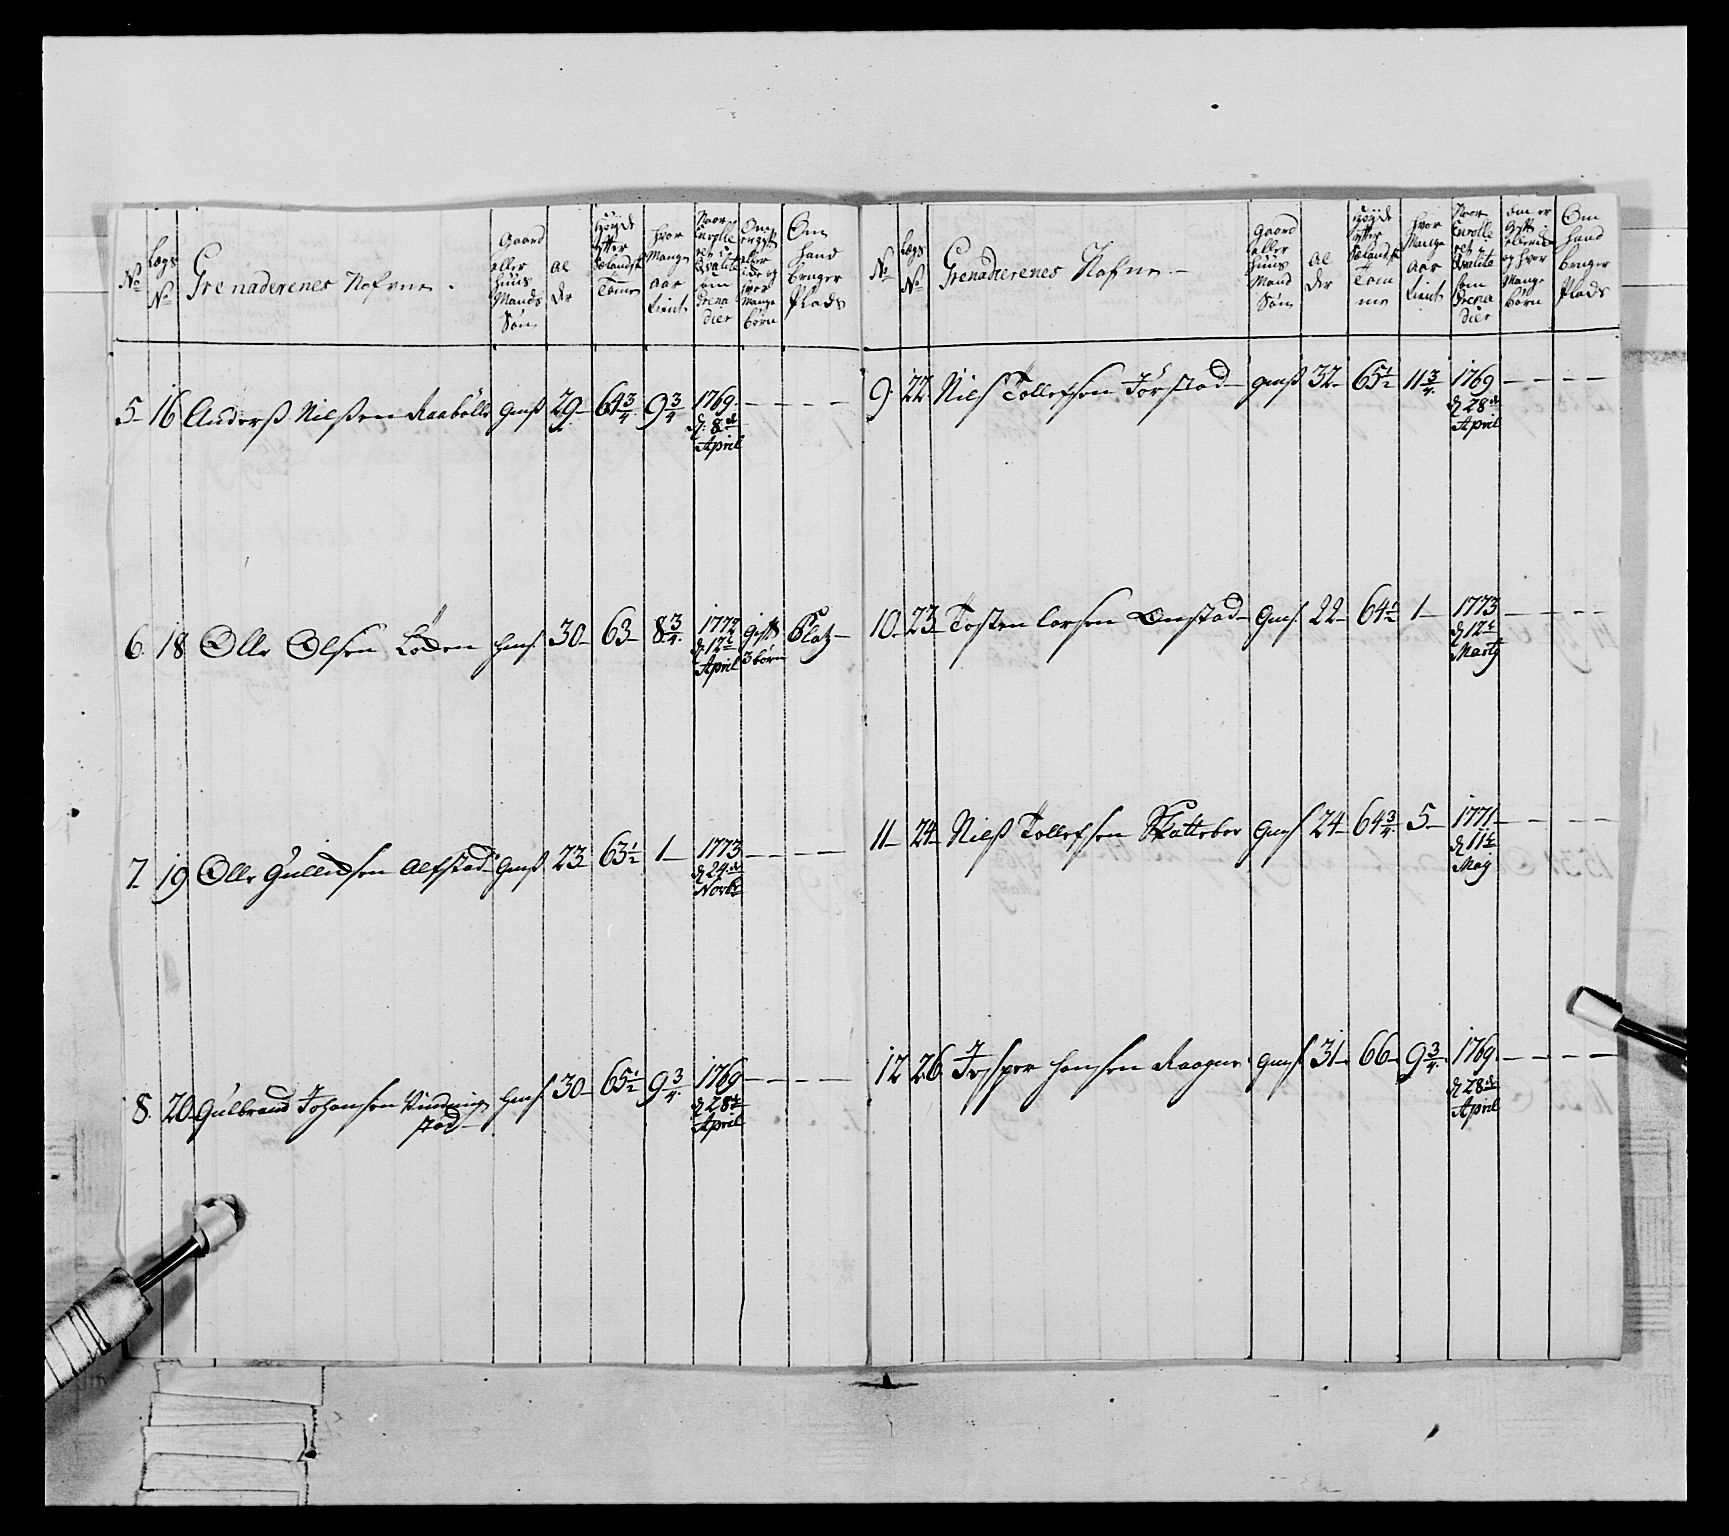 No
Lægs No
Grenaderernes Nafvne
Gaard eller Huus Mands Søn
Al der
Høyde efter Sælandsk Tomme
hvor Mange aar tient
Naar Enrolle ret i Qvalite som Grena dier
Om gift eller ei og hvor Mange børn
Om hand bruger Plads
5 16 Anders Nilsen Raabølle Gmsß 29 64 3/4 9 3/4 1769 — — — —
d. 8de
April
6 18 Olle Olsen Løden hms. 30 63 8 3/4 1772 gift Platz
d. 12te 3 børn
April
7 19 Olle Gulledsen Alfstad Gmsß 23 63 1/2 1 1773 — — — —
d. 24de
Novbr
8 20 Gulbrand Johansen Vinding hms. 30 65 1/2 9 3/4 1769 — — — —
stad d 28de
April
No
Lægs No
Grenadierenes Nafvne
Gaard eller Huus Mand Søn
Al der
Høyde efter Sælandsk Tom me
hvor Mange Aar tient
Naar Enrolle ret i Qvalite som Grena dier
Om er gift eller ei og hvor Mange børn
Om hand bruger Plads
9 22 Nils Tollefsen Jørstad gmsß 32 65 1/2 11 3/4 1769 — — — —
d 28de
April
10 23 Tosten Larsen Onstad Gms. 22 64 1/2 1 1773 — — — —
d 12te
Marty
11 24 Nilß Tollefsen Skatteboe Gms. 24 64 3/4 5 1771 — — — —
d 11te
May
12 26 Jesper Hansen Raagne gms. 31 66 9 3/4 1769 — — — —
d 28de
April